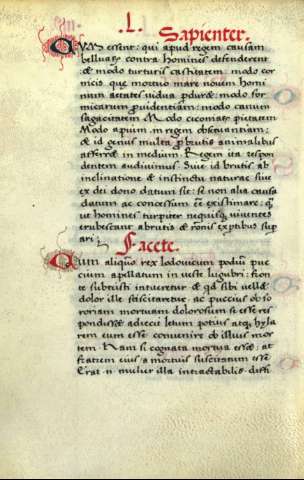 .L. Sapienter.
Qum essent: qui apud regem causam
belluaꝝ contra Homines defenderent
& modo turturis castitatem modo cor
nicis que mortuo mare novem homi
num aetates vidua pdurat: modo for
micarum pvidentiam: modo canum
sagacitatem Modo ciconiae pietatem
Modo apium in regem obseruantiam:
& id genus multa p brutis animalibus
afferret in medium. Regem ita respon
dentem audiuimus. Siue id brutis ab
inclinatione & instinctu naturae siue
ex dei dono datum sit: se non alia causa
datum ac concessum eē existimare: q̄
ut homines turpiter nequiterq; uiuentes
erubescant a brutis & rōnis exptibus sup
ari:
Facete.
Qum aliquo rex Lodovicum podium puc
cium apellatum in veste lugubri: fron
te subtristi intueretur & qd sibi vellet
dolor ille sciscitaretur: ac puccius ob so
roriam mortuam dolorosum se esse res
pondisset: adiecit letum potius atq; hyla
rem eum esse convenire ob illius mor
tem. Nam si cognata mortua esset: at
fratrem eius a mortuis suscitatum esse.
Erat n mulier illa intractabilis diffi